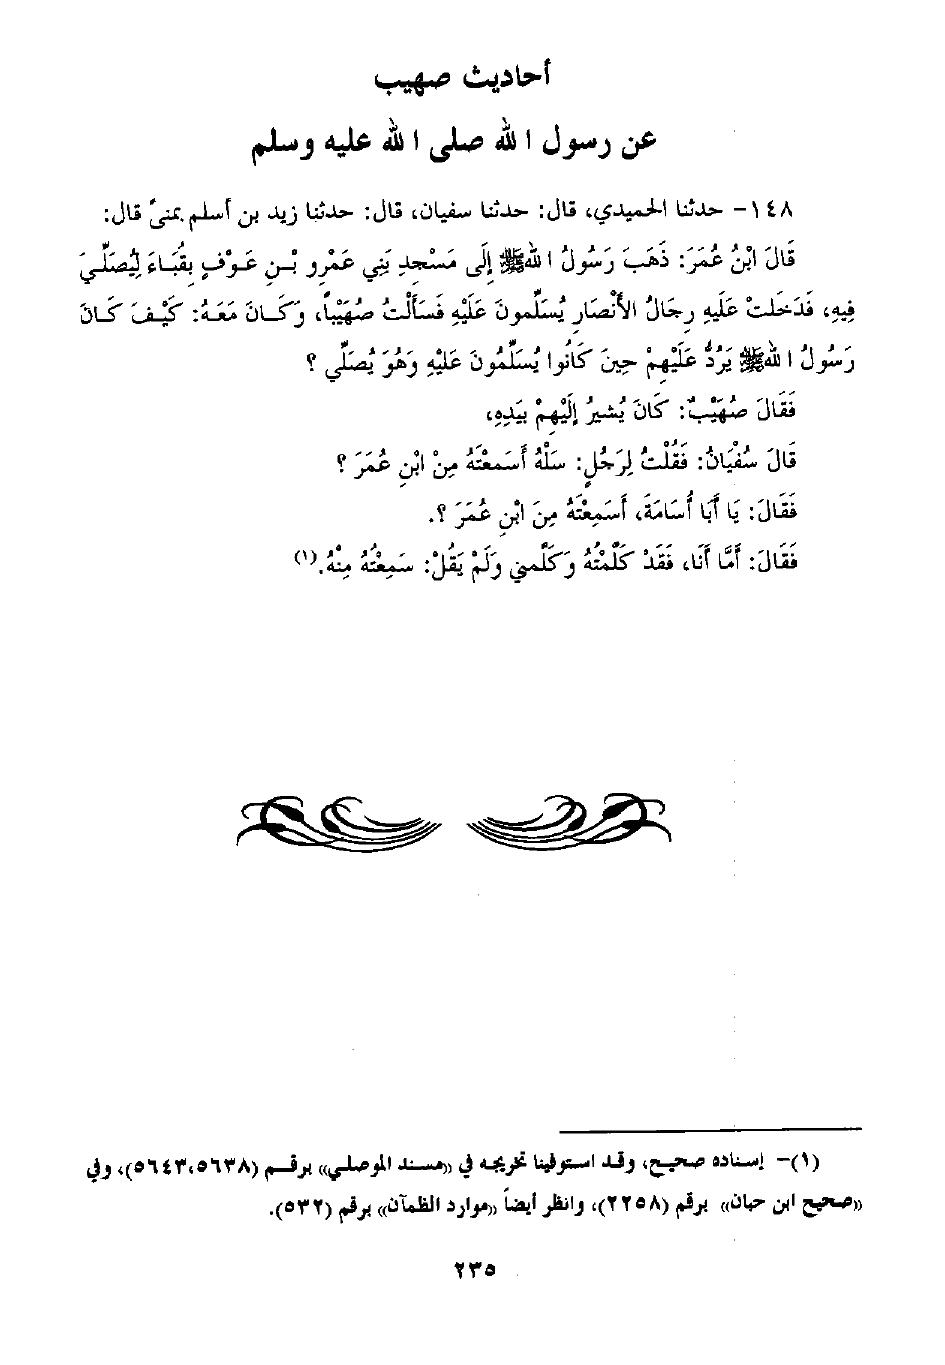 أحاديث صهيب
عن رسول الله صلى الله عليه وسلم
١٤٨- حدثنا الحميدي، قال: حدثنا سفيان، قال: حدثنا زيد بن أسلم بمنىً قال:
قَالَ ابْنُ عُمَرَ: ذَهَبَ رَسُولُ اللهِ ﷺ إِلَى مَسْجِدِ بَنِي عَمْرِو بْنِ عَوْفٍ بِقُبَاءَ لِيُصَلِّيَ
فِيهِ، فَدَخَلَتْ عَلَيهِ رِجَالُ الأَنْصَارِ يُسَلِّمونَ عَلَيْهِ فَسَأَلْتُ صُهَيْباً، وَكَانَ مَعَهُ: كَيْفَ كَانَ
رَسُولُ اللهِ ﷺ يَرُدُّ عَلَيْهِمْ حِينَ كَانُوا يُسَلِّمُونَ عَلَيْهِ وَهُوَ يُصَلِّي ؟
فَقَالَ صُهَيْبٌ: كَانَ يُشيرُ إِلَيْهِمْ بِيَدِهِ،
قَالَ سُفْيَانُ: فَقُلْتُ لِرَجُلٍ: سَلْهُ أَسَمِعْتَهُ مِنْ ابْنِ عُمَرَ ؟
فَقَالَ: يَا أَبَا أُسَامَةَ، أَسَمِعْتَهُ مِنَ ابْنِ عُمَرَ ؟.
فَقَالَ: أَمَّا أَنَا، فَقَدْ كَلَّمْتُهُ وَكَلَّمَنِي وَلَمْ يَقُلْ: سَمِعْتُهُ مِنْهُ.(١)
(١)- إسناده صحيح، وقد استوفينا تخريجه في «مسند الموصلي» برقم (٥٦٣٨،٥٦٤٣)، وفي
«صحيح ابن حبان» برقم (٢٢٥٨)، وانظر أيضاً «موارد الظمآن» برقم (٥٣٢).
٢٣٥